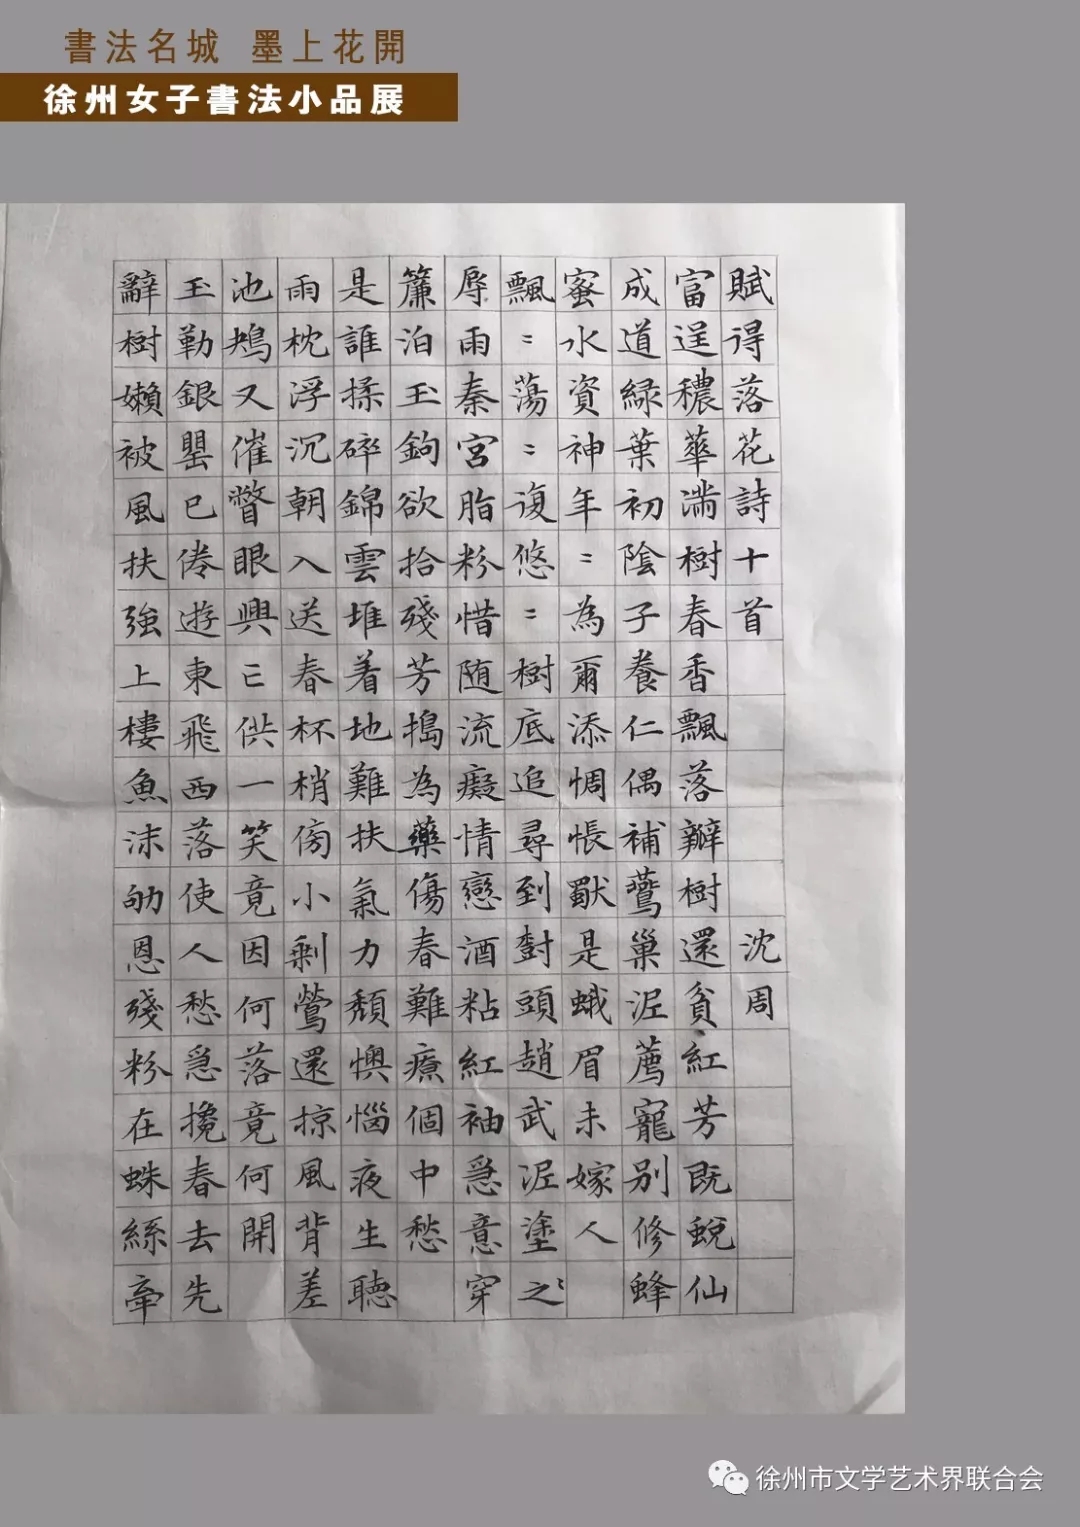 書法名城 墨上花開
徐州女子書法小品展
賦得落花詩十首 沈周
富逞穠華滿樹春香飄落瓣樹還貧紅芳既蛻仙
成道緑葉初陰子養仁偶補鷰巢泥薦寵別修蜂
蜜水資神年=為爾添惆悵是蛾眉未嫁人
飄=蕩=復悠=樹底追尋到對頭趙武泥塗之
辱雨秦宮脂粉惜随流癡情戀酒粘紅袖急意穿
簾泊玉鉤欲拾殘芳搗為藥傷春難療個中愁
是誰揉碎錦雲堆着地難扶氣力頹懊惱夜生聽
雨枕浮沉朝入送春杯梢傍小剩鶯還掠風背差
池又催瞥眼興亡供一笑竟因何落竟何開
玉勒銀罌已倦遊東飛西落使人愁急攙春去先
辭樹嬾被風扶強上樓魚沫恩殘粉在蛛絲牽
徐州市文学艺术界联合会